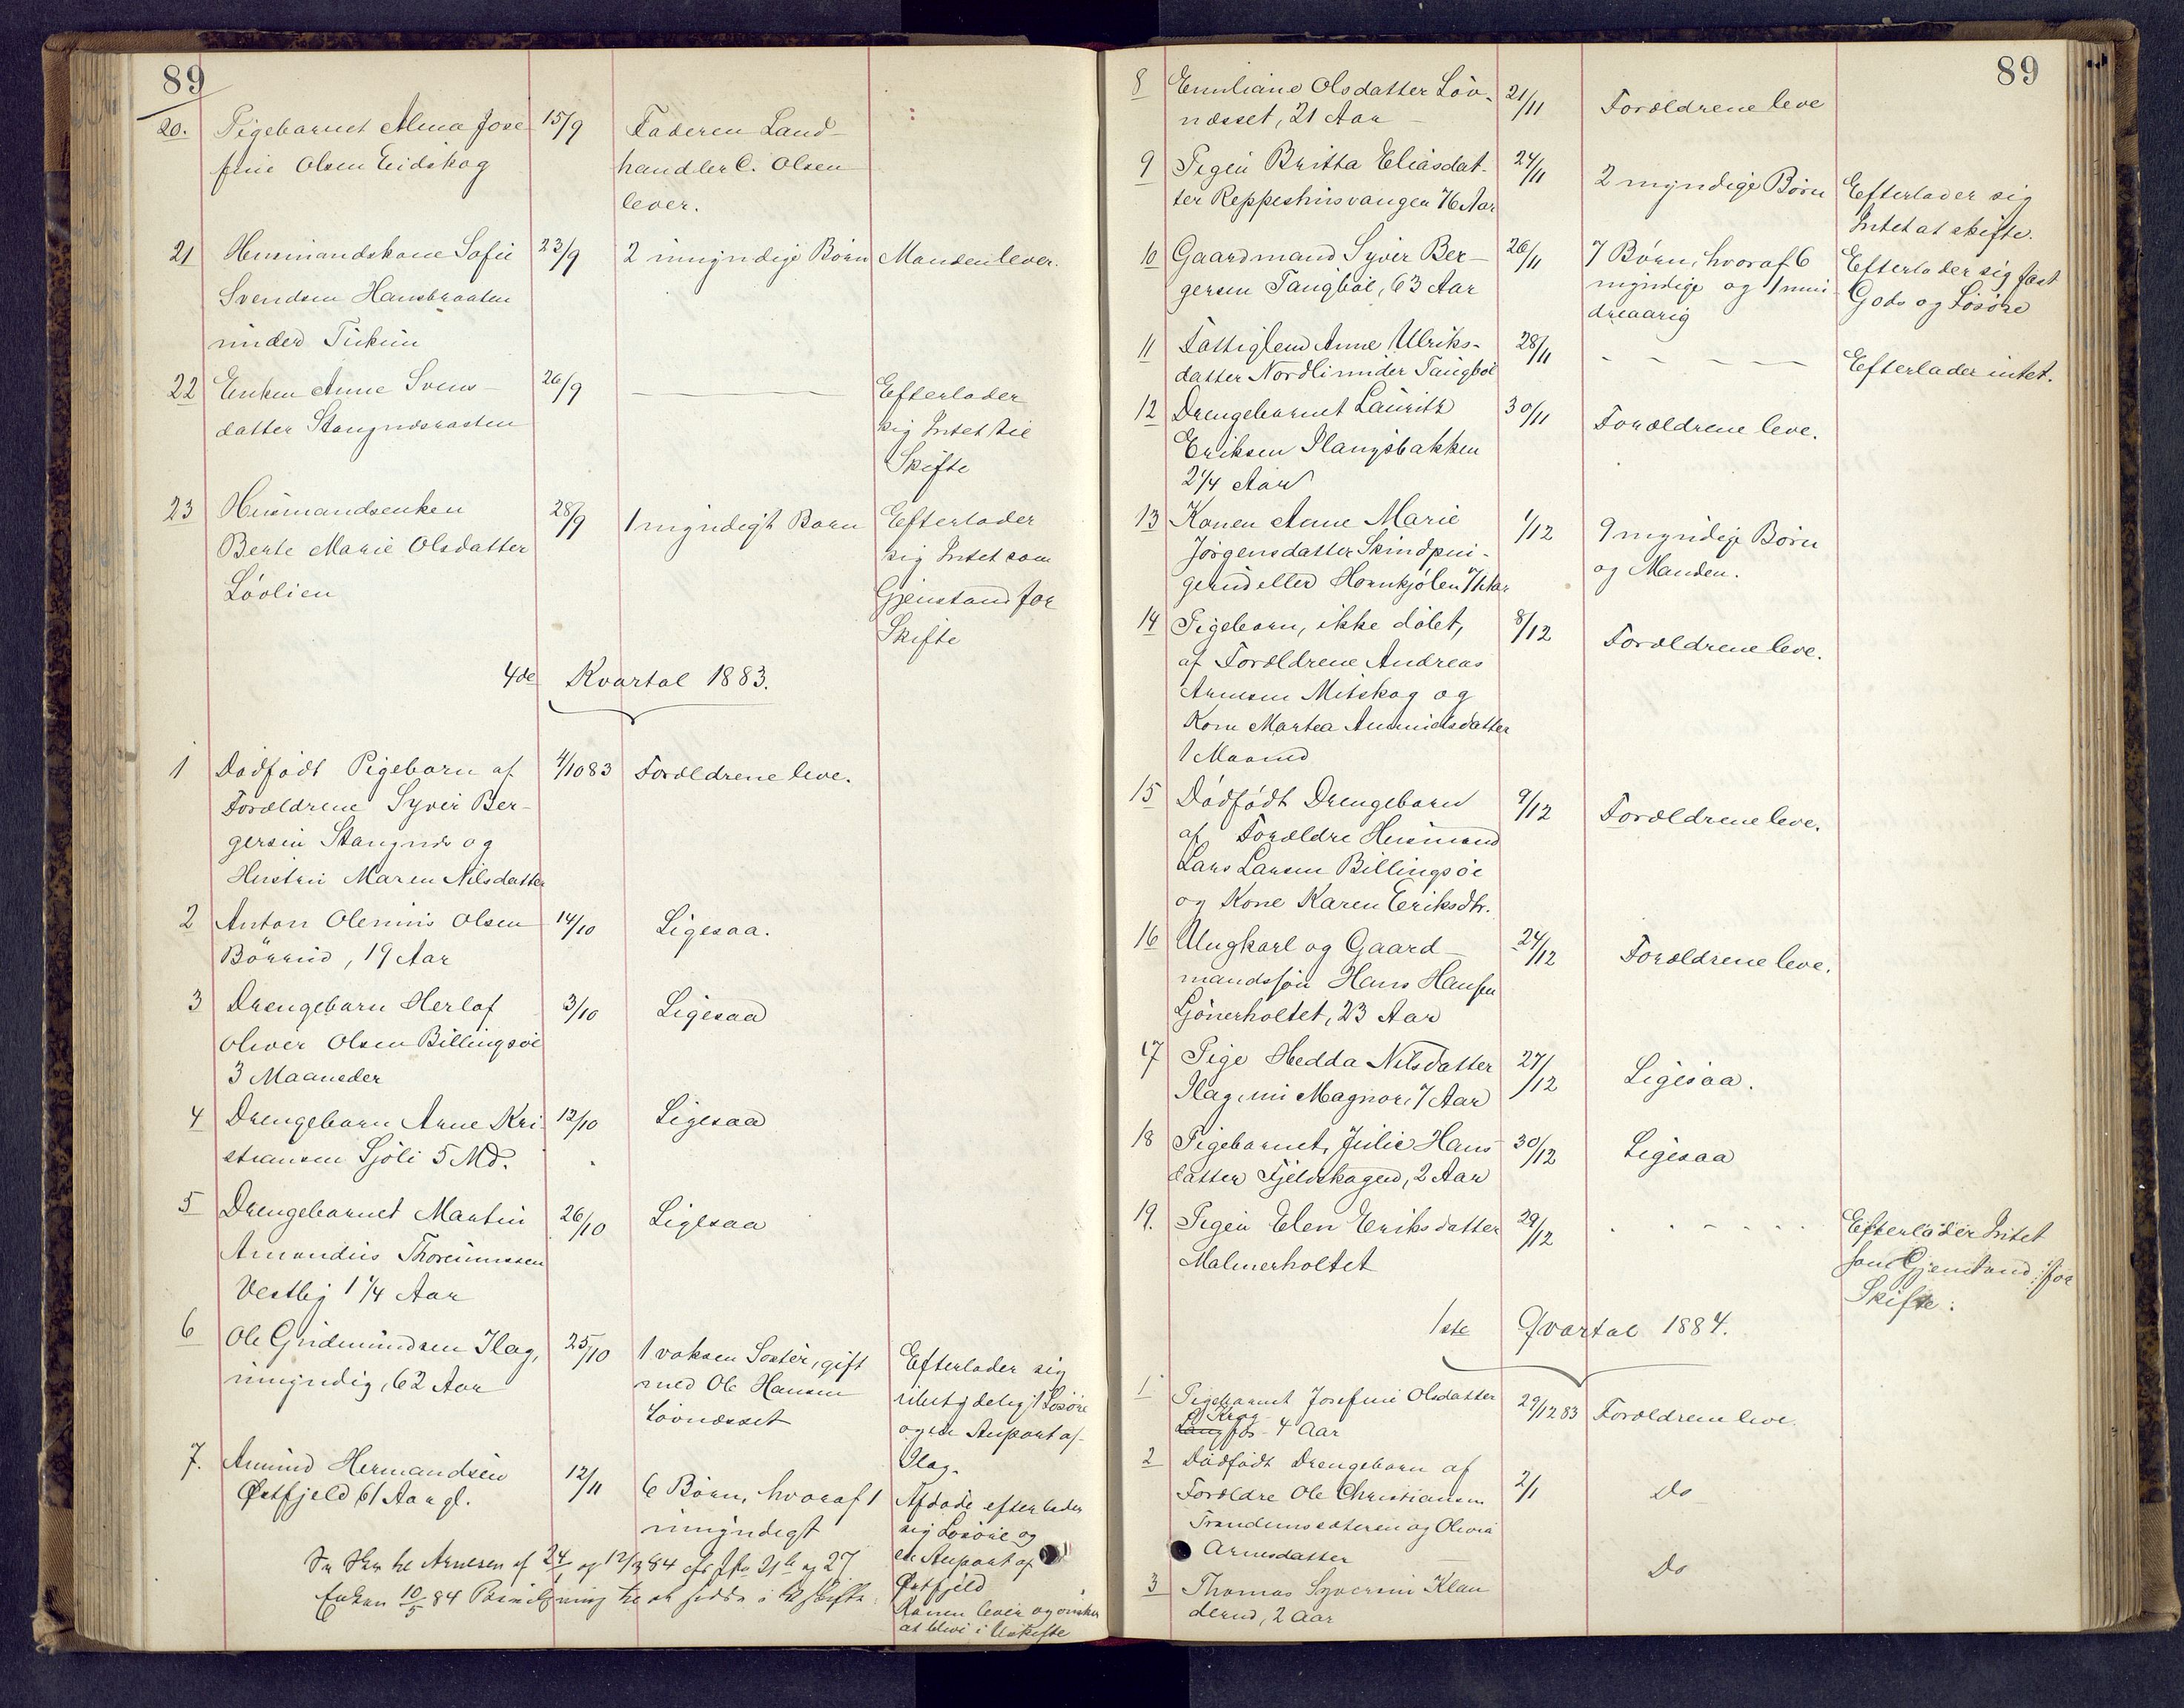 89
20. Pigebarnet Alma Jose- 15/9 Faderen Land-
fine Olsen Eidskog handler C. Olsen
lever.
21 Husmandskone Sofie 23/9 2 umyndige Børn Manden lever.
Svendsen Hansbraaten
under
22 Enken Anne Svens- 26/9 Efterlader
datter Stangnæsrasten sig Intet til
Skifte
23 Husmandsenken 28/9 1 myndigt Barn Efterlader
Berte Marie Olsdatter sig Intet som
Løvlien Gjenstand for
Skifte
4de Kvartal 1883.
1 Dødfødt Pigebarn af 4/10 83 Forældrene leve.
Forældrene Syver Ber-
gersen Stangnæs og
Hustru Maren Nilsdatter
2 Anton Olenius Olsen 14/10 Ligesaa.
Børrud, 19 Aar
3 Drengebarn Herlof 3/10 Ligesaa
Oliver Olsen Billingsøe
3 Maaneder
4 Drengebarn Arne Kri- 12/10 Ligesaa
stiansen Sjøli 5 Md.
5 Drengebarnet Martin 26/10 Ligesaa
Amandus
Vestby 1 1/4 Aar
6 Ole Gudmundsen Ilag, 25/10 1 voksen Søster, gift Efterlader sig
umyndig, 62 Aar med Ole Hansen ubetydeligt Løsøre
Løvnæsset og en Anpart af
Ilag.
7. Amund Hermandsen 12/11 6 Børn, hvoraf 1 Afdøde efterlader
Østfjeld 61 Aar gl. umyndigt sig Løsøre og
en Anpart af
Østfjeld
Konen lever og ønsker
at blive i Uskifte
Enken 10/5 84
89
8 Emiliane Olsdatter Løv- 21/11 Forældrene leve
næsset, 21 Aar
9 Pigen Britta Eliasdat- 24/11 2 myndige Børn Efterlader sig
ter Reppeshusvangen 76 Aar Intet at skifte.
10 Gaardmand Syver Ber- 26/11 7 Børn, hvoraf 6 Efterlader sig fast
gersen Tangbøl, 63 Aar myndige og 1 min- Gods og Løsøre
dreaarig
11 Fattiglem Anne Ulriks- 28/11 Efterlader intet.
datter Nordli under Tangbøl
12 Drengebarnet Lauritz 30/11 Forældrene leve.
Eriksen Slangsbakken
2 1/4 Aar
13 Konen Anne Marie 1/12 9 myndige Børn
Jørgensdatter Skindpun- og Manden.
gerud eller Hornkjølen 71 Aar
14 Pigebarn, ikke døbt, 8/12 Forældrene leve.
af Forældrene Andreas
Arnesen Mitskog og
Kone Martea Amundsdatter
1 Maaned
15 Dødfødt Drengebarn 9/12 Forældrene leve.
af Forældre Husmand
Lars Larsen Billingsøe
og Kone Karen Eriksdtr.
16 Ungkarl og Gaard- 24/12 Forældrene leve.
mandssøn Hans Hansen
Gjønerholtet, 23 Aar
17 Pige Hedda Nilsdatter 27/12 Ligesaa.
Ilag, Magnor, 7 Aar
18 Pigebarnet, Julie Hans- 30/12 Ligesaa
datter Fjeldskogen, 2 Aar
19. Pigen Elen Eriksdatter 29/12 Efterlader Intet
Malmerholtet som Gjenstand for
Skifte.
1ste Qvartal 1884.
1 Pigebarnet Josefine Olsdatter 29/12 83 Forældrene leve.
Krog
4 Aar
2 Dødfødt Drengebarn af 2/1 Do
Forældre Ole Christiansen
og Olivia
Arnesdatter
3 Thomas Syversen Klan- Do
derud, 2 Aar